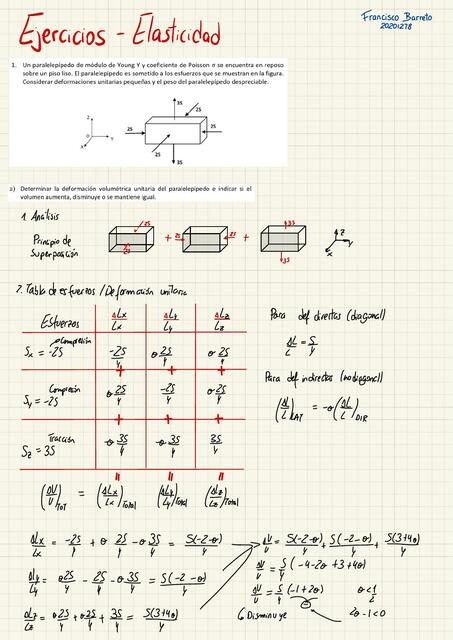 Francisco Barreto
20201278
Ejercicios - Elasticidad
1. Un paralelepípedo de módulo de Young Y y coeficiente de Poisson σ se encuentra en reposo
sobre un piso liso. El paralelepípedo es sometido a los esfuerzos que se muestran en la figura.
Considerar deformaciones unitarias pequeñas y el peso del paralelepípedo despreciable.
3S
2S
Z
O Y
X
2S 2S
2S
3S
a) Determinar la deformación volumétrica unitaria del paralelepípedo e indicar si el
volumen aumenta, disminuye o se mantiene igual.
1. Análisis
Principio de
Superposición
2S + 2S 2S + 3S
2S 3S
z
y
x
2. Tabla de esfuerzos / Deformación unitaria
Esfuerzos ΔLx/Lx ΔLy/Ly ΔLz/Lz
Compresión
Sx = -2S -2S/Y σ2S/Y σ2S/Y
+ + +
Compresión
Sy = -2S σ2S/Y -2S/Y σ2S/Y
+ + +
Tracción
Sz = 3S -σ3S/Y -σ3S/Y 3S/Y
= = =
(ΔV/V)TOT = (ΔLx/Lx)Total (ΔLy/Ly)Total (ΔLz/Lz)Total
Para def directas (diagonal)
ΔL/L = S/Y
Para def indirectas (no diagonal)
(ΔL/L)LAT = -σ(ΔL/L)DIR
ΔLx/Lx = -2S/Y + σ2S/Y - σ3S/Y = S(-2-σ)/Y
ΔLy/Ly = σ2S/Y - 2S/Y - σ3S/Y = S(-2-σ)/Y
ΔLz/Lz = σ2S/Y + σ2S/Y + 3S/Y = S(3+4σ)/Y
ΔV/V = S(-2-σ)/Y + S(-2-σ)/Y + S(3+4σ)/Y
ΔV/V = S/Y (-4-2σ+3+4σ)
ΔV/V = S/Y (-1+2σ) σ<1/2
Disminuye 2σ-1<0